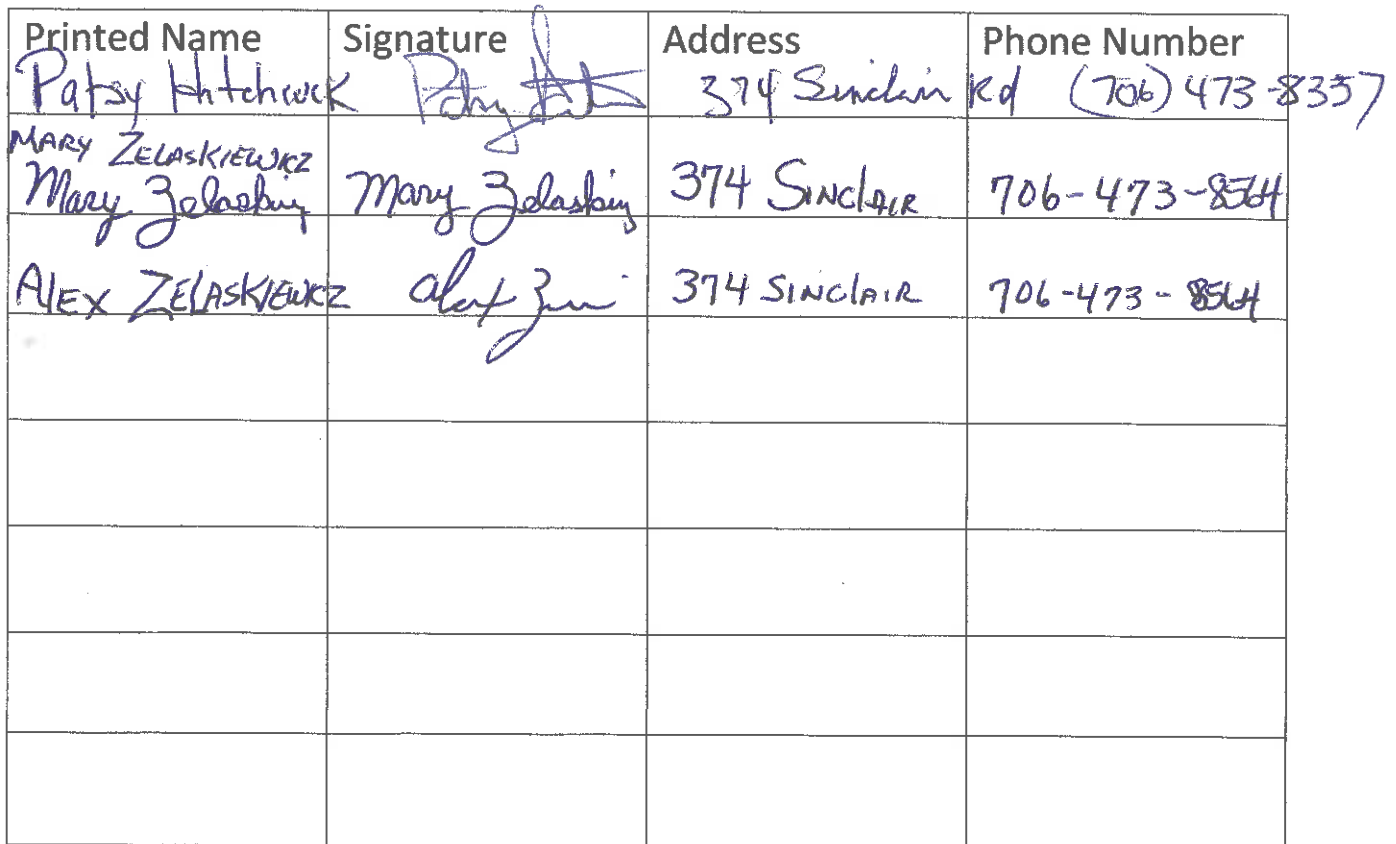 Printed Name Signature Address Phone Number
Patsy Hitchcock Patsy 374 Sinclair Rd (706) 473-8357
MARY ZELASKIEWICZ
Mary Mary 374 SINCLAIR 706-473-8564
ALEX ZELASKIEWICZ Alex 374 SINCLAIR 706-473-8564